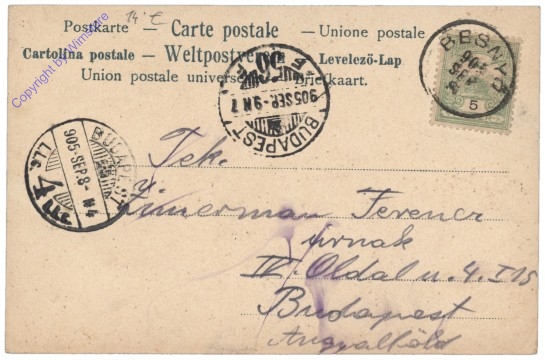 14 £
Postkarte — Carte postale — Unione postale
Cartolina postale — Weltpostverein — Levelező-Lap
Union postale universelle Briefkaart.
Copyright by Wimstore
BESNYŐ
905
5
56
905 SEP.-9.N 7
BUDAPEST
BUDAPEST
905-SEP.8- N 4
Tek.
Zimerman Ferencz
úrnak
Oldal u. 4. I 15
Budapest
Angyalföld